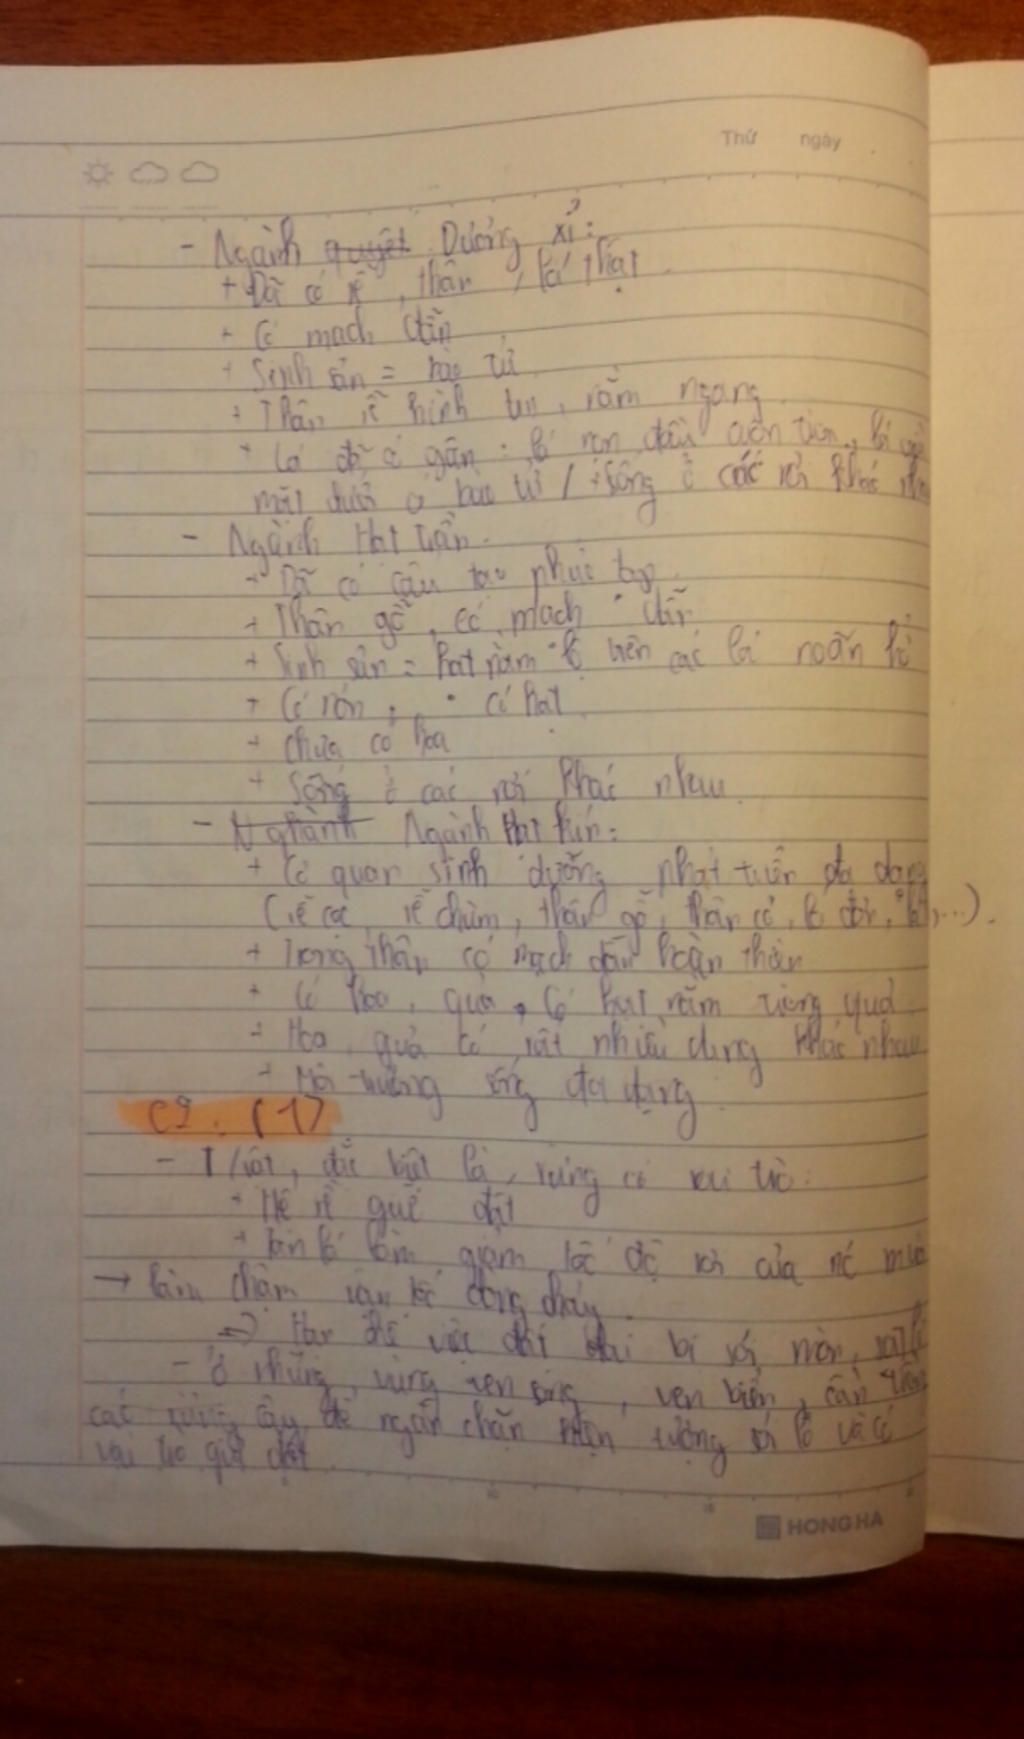 Thứ ngày
- Ngành quyết Dương xỉ:
+ Đã có rễ, thân, lá thật
+ Có mạch dẫn
+ Sinh sản = bào tử
+ Thân rễ hình trụ, nằm ngang
+ Lá đã có gân: lá non đầu cuộn tròn, lá già
mặt dưới có bào tử / + sống ở các nơi khác nhau
- Ngành Hạt trần.
+ Đã có cấu tạo phức tạp
+ Thân gỗ, có mạch dẫn
+ Sinh sản = hạt nằm lộ trên các lá noãn hở
+ Có nón, có hạt
+ Chưa có hoa
+ Sống ở các nơi khác nhau
- Nghành Ngành Hạt kín:
+ Cơ quan sinh dưỡng phát triển đa dạng
(rễ cọc, rễ chùm, thân gỗ, thân cỏ, lá đơn, ...).
+ Trong thân có mạch dẫn hoàn thiện
+ Có hoa, quả, có hạt nằm trong quả
+ Hoa, quả có rất nhiều dạng khác nhau
+ Môi trường sống đa dạng
C9. (1)
- T/vật, đặc biệt là rừng có vai trò:
+ Hệ rễ giữ đất
+ Tán lá làm giảm tốc độ rơi của nc mưa
→ làm chậm vận tốc dòng chảy.
=> Hạn chế việc đất đai bị xói mòn, sạt lở
- Ở những vùng ven sông, ven biển, cần trồng
các rừng cây để ngăn chặn hiện tượng sạt lở và có
vai trò giữ đất
HONG HA